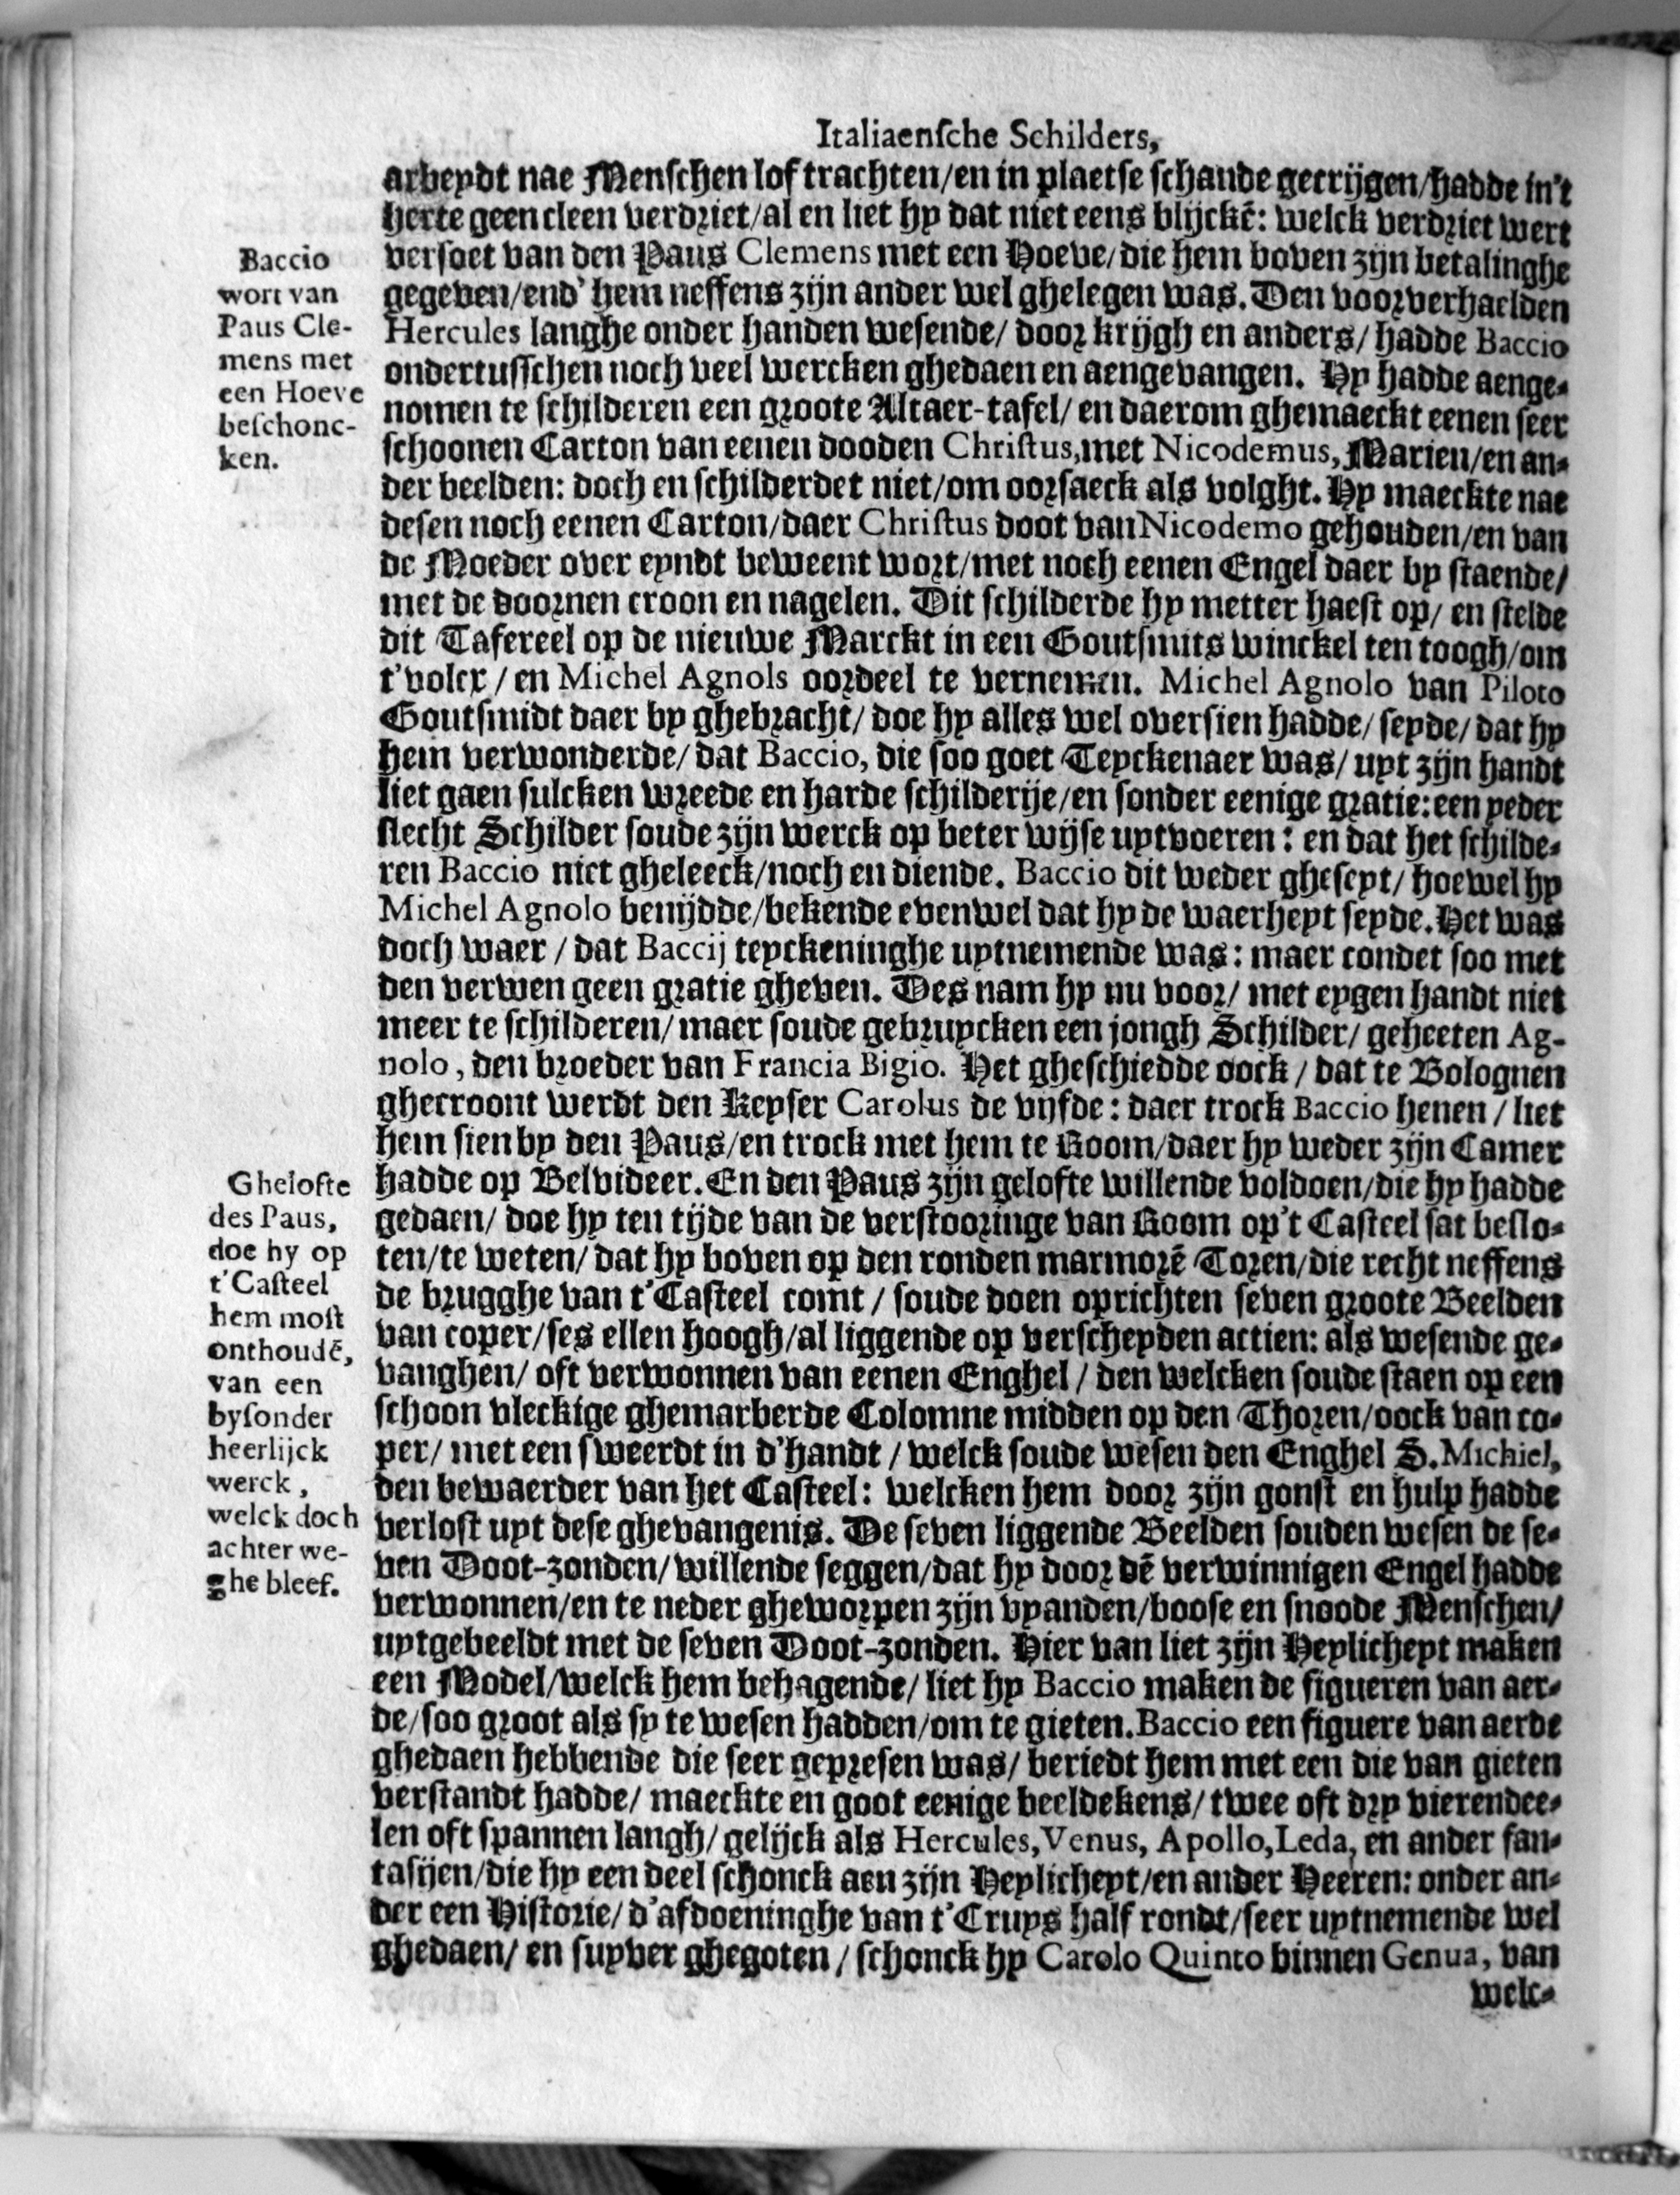 Italiaensche Schilders,
arbeydt nae Menschen lof trachten/en in plaetse schande gecrijgen/hadde in't
herte geen cleen verdriet/al en liet hy dat niet eens blijckē: welck verdriet wert
versoet van den Paus Clemens met een Hoeve/die hem boven zijn betalinghe
gegeven/end' hem neffens zijn ander wel ghelegen was. Den voorverhaelden
Hercules langhe onder handen wesende/ door krijgh en anders/ hadde Baccio
ondertusschen noch veel wercken ghedaen en aengevangen. Hy hadde aenge-
nomen te schilderen een groote Altaer-tafel/ en daerom ghemaeckt eenen seer
schoonen Carton van eenen dooden Christus, met Nicodemus, Marien/en an-
der beelden: doch en schilderdet niet/om oorsaeck als volght. Hy maeckte nae
desen noch eenen Carton/daer Christus doot van Nicodemo gehouden/en van
de Moeder over eyndt beweent wort/met noch eenen Engel daer by staende/
met de doornen croon en nagelen. Dit schilderde hy metter haest op/ en stelde
dit Tafereel op de nieuwe Marckt in een Goutsmits winckel ten toogh/om
t'volcx/en Michel Agnols oordeel te vernemen. Michel Agnolo van Piloto
Goutsmidt daer by ghebracht/ doe hy alles wel oversien hadde/ seyde/ dat hy
hem verwonderde/ dat Baccio, die soo goet Teyckenaer was/ uyt zijn handt
liet gaen sulcken wreede en harde schilderije/en sonder eenige gratie: een yeder
slecht Schilder soude zijn werck op beter wijse uytvoeren: en dat het schilde-
ren Baccio niet gheleeck/noch en diende. Baccio dit weder gheseyt/ hoewel hy
Michel Agnolo benijdde/bekende evenwel dat hy de waerheyt seyde. Het was
doch waer/ dat Baccij teyckeninghe uytnemende was: maer condet soo met
den verwen geen gratie gheven. Des nam hy nu voor/ met eygen handt niet
meer te schilderen/ maer soude gebruycken een jongh Schilder/ geheeten Ag-
nolo, den broeder van Francia Bigio. Het gheschiedde oock/ dat te Bolognen
ghecroont werdt den Keyser Carolus de vijfde: daer trock Baccio henen/ liet
hem sien by den Paus/en trock met hem te Room/daer hy weder zijn Camer
hadde op Belvideer. En den Paus zijn gelofte willende voldoen/die hy hadde
gedaen/ doe hy ten tijde van de verstooringe van Room op't Casteel sat beslo-
ten/te weten/ dat hy boven op den ronden marmorē Toren/die recht neffens
de brugghe van t'Casteel comt/ soude doen oprichten seven groote Beelden
van coper/ses ellen hoogh/al liggende op verscheyden actien: als wesende ge-
vanghen/ oft verwonnen van eenen Enghel/ den welcken soude staen op een
schoon vleckige ghemarberde Colomne midden op den Thoren/oock van co-
per/ met een sweerdt in d'handt/ welck soude wesen den Enghel S. Michiel,
den bewaerder van het Casteel: welcken hem door zijn gonst en hulp hadde
verlost uyt dese ghevangenis. De seven liggende Beelden souden wesen de se-
ven Doot-zonden/willende seggen/dat hy door dē verwinnigen Engel hadde
verwonnen/en te neder gheworpen zijn vyanden/boose en snoode Menschen/
uytgebeeldt met de seven Doot-zonden. Hier van liet zijn Heylicheyt maken
een Model/welck hem behagende/ liet hy Baccio maken de figueren van aer-
de/soo groot als sy te wesen hadden/om te gieten. Baccio een figuere van aerde
ghedaen hebbende die seer gepresen was/ beriedt hem met een die van gieten
verstandt hadde/ maeckte en goot eenige beeldekens/ twee oft dry vierendee-
len oft spannen langh/ gelijck als Hercules, Venus, Apollo, Leda, en ander fan-
tasijen/die hy een deel schonck aen zijn Heylicheyt/en ander Heeren: onder an-
der een Historie/ d'afdoeninghe van t'Cruys half rondt/seer uytnemende wel
ghedaen/ en suyver ghegoten/ schonck hy Carolo Quinto binnen Genua, van
welc-
Baccio
wort van
Paus Cle-
mens met
een Hoeve
beschonc-
ken.
Ghelofte
des Paus,
doe hy op
t'Casteel
hem most
onthoudē,
van een
bysonder
heerlijck
werck,
welck doch
achter we-
ghe bleef.